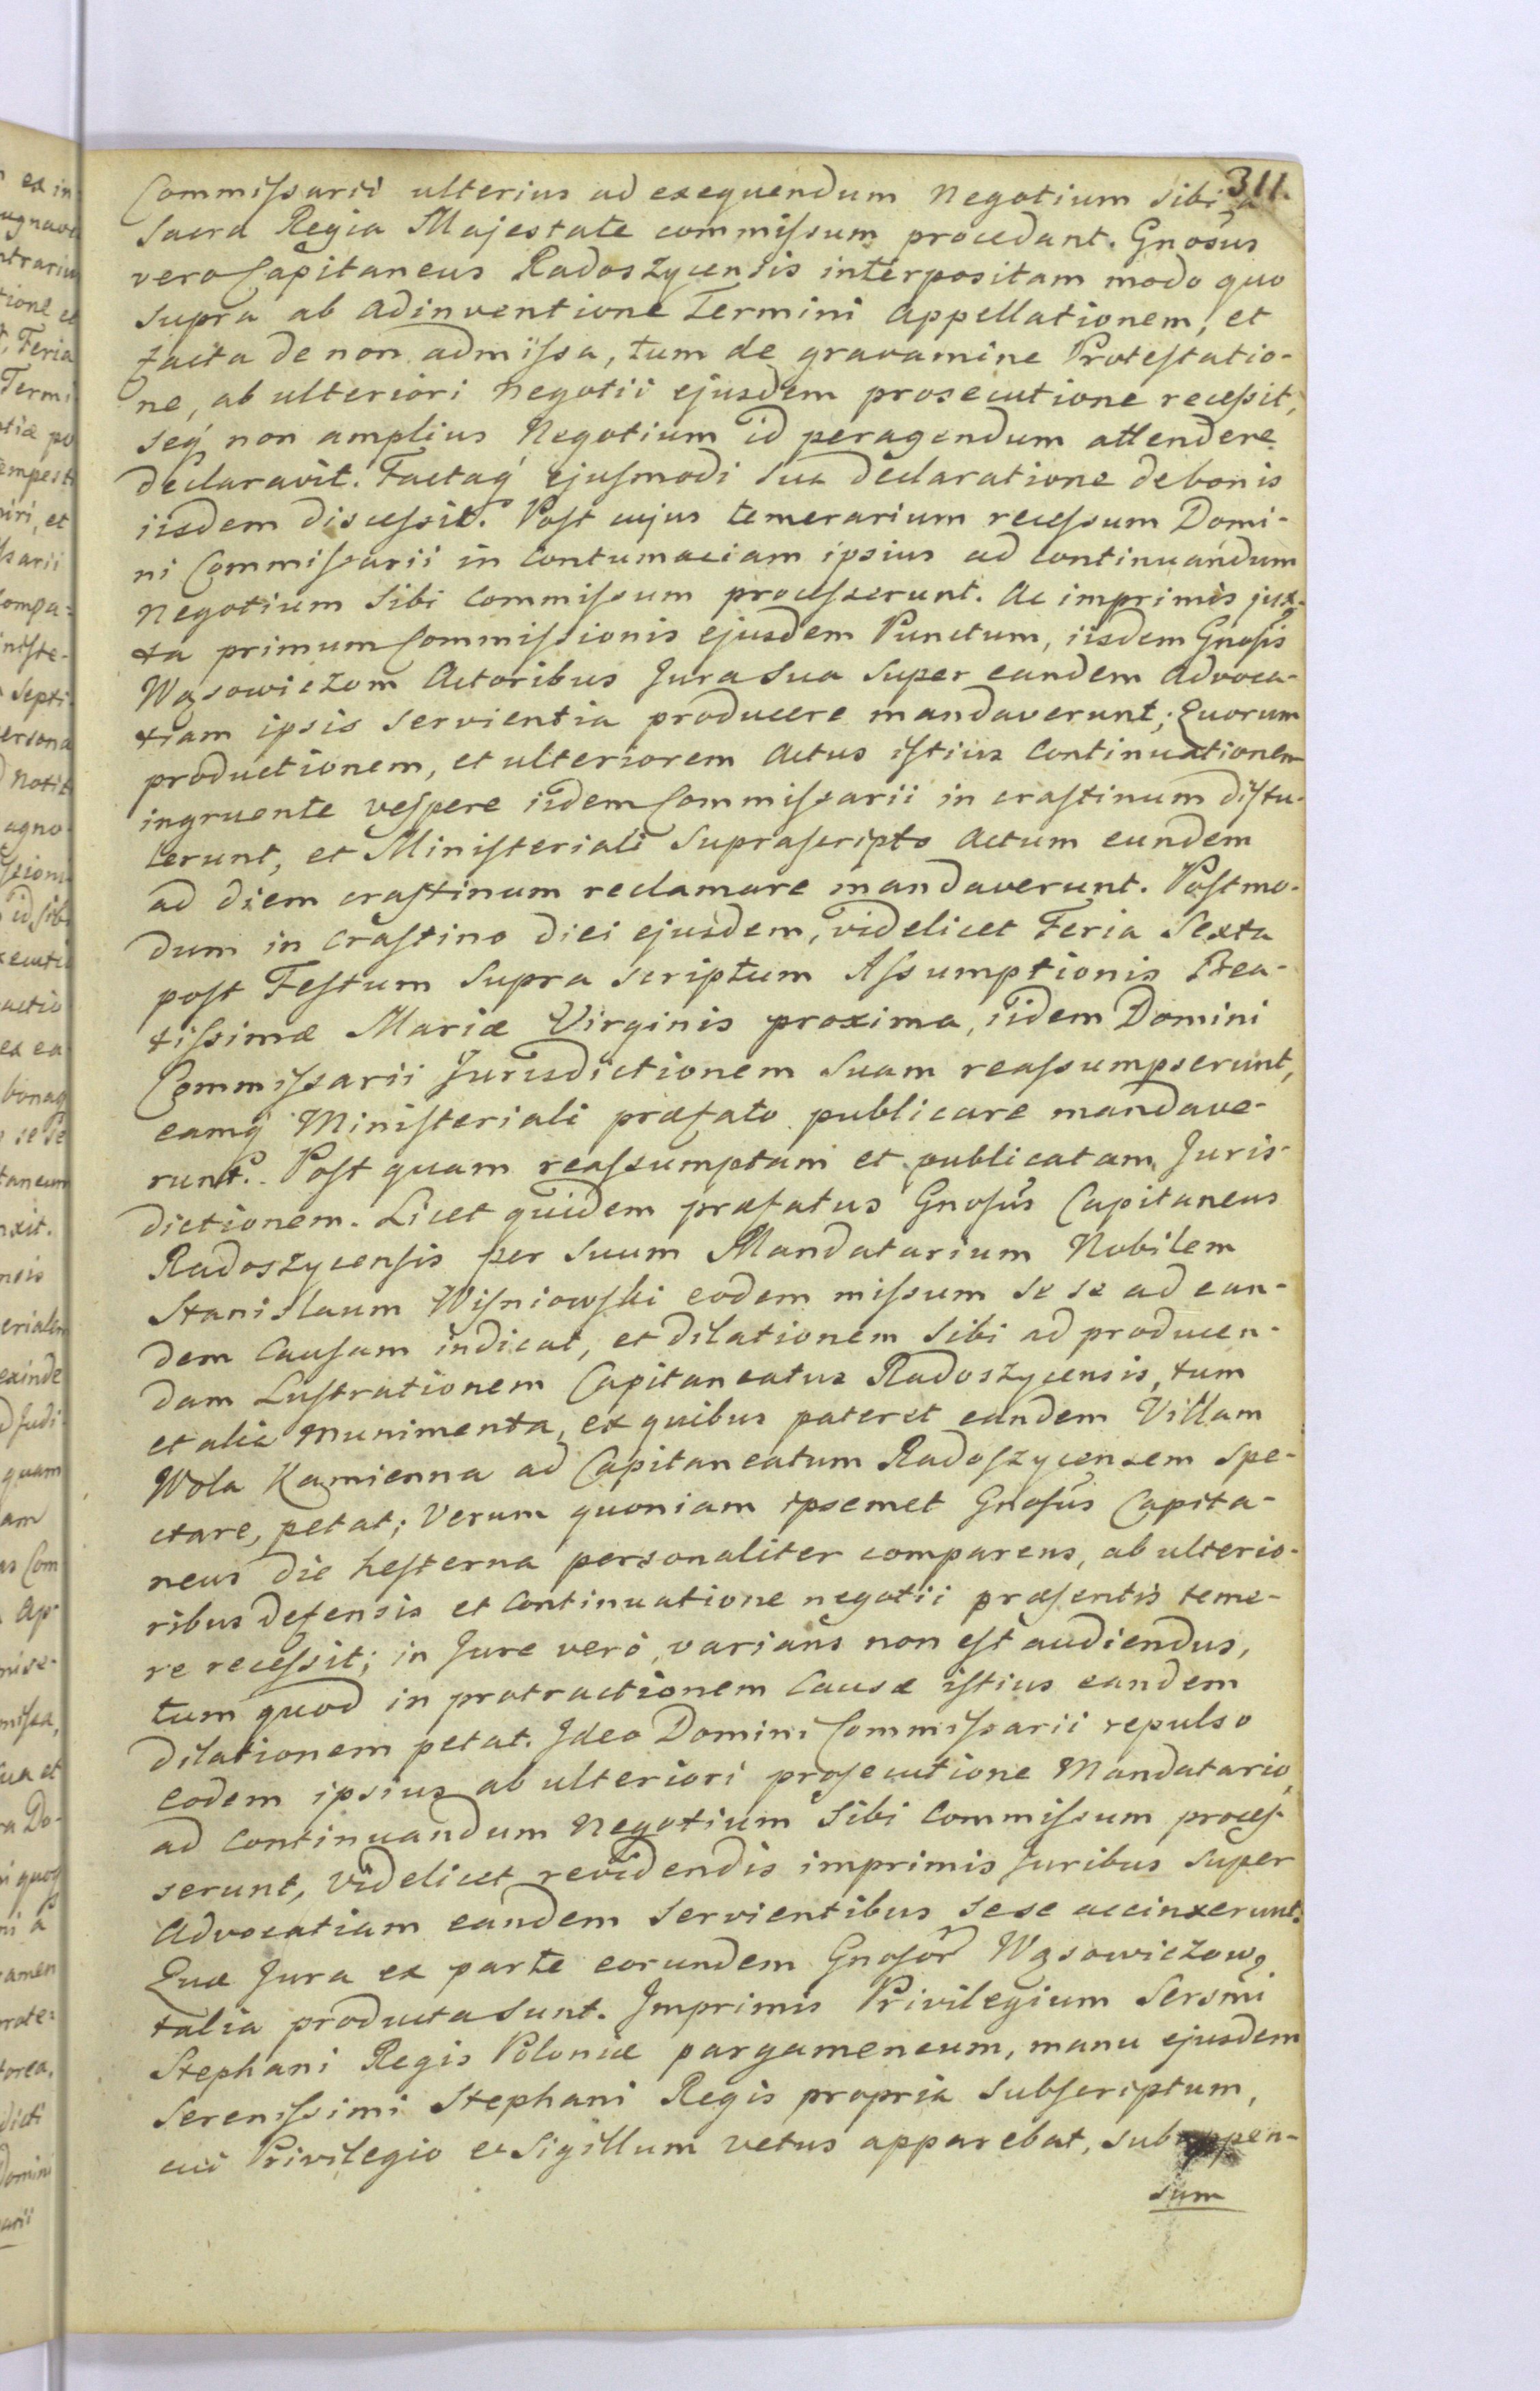 311.
Commissarii ulterius ad exequendum Negotium sibi a
Sacra Regia Majestate commissum procedant. Gnosus
vero Capitaneus Radoszycensis interpositam modo quo
supra ab adinventione Termini Appellationem, et
facta de non admissa, tum de gravamine Protestatio-
ne, ab ulteriori negotii ejusdem prosecutione recessit,
seq́ non amplius Negotium id peragendum attendere
declaravit. Factaq́ ejusmodi sua declaratione de bonis
iisdem discessit. Post cujus temerarium recessum Domi-
ni Commissarii in Contumaciam ipsius ad continuandum
Negotium sibi Commissum processerunt. Ac imprimis jux-
ta primum Commissionis ejusdem Punctum, iisdem Gnosis
Wąsowiczom Actoribus Jura sua super eandem Advoca-
tiam ipsis servientia producere mandaverunt; Quorum
productionem, et ulteriorem Actus istius Continuationem
ingruente vespere iidem Commissarii in crastinum distu-
lerunt, et Ministeriali suprascripto Actum eundem
ad diem crastinum reclamare mandaverunt. Postmo-
dum in Crastino diei ejusdem, videlicet Feria Sexta
post Festum supra scriptum Assumptionis Bea-
tissimæ Mariæ Virginis proxima, iidem Domini
Commissarii Jurisdictionem suam reassumpserunt,
eamq́ Ministeriali præfato publicare mandave-
runt. Post quam reassumptam et publicatam Juris-
dictionem. Licet quidem præfatus Gnosus Capitaneus
Radoszycensis per suum Mandatarium Nobilem
Stanislaum Wisniowski eodem missum se se ad ean-
dem Causam indicat, et dilationem sibi ad producen-
dam Lustrationem Capitaneatus Radoszycensis, tum
et alia Munimenta, ex quibus pateret eandem Villam
Wola Kamienna ad Capitaneatum Radoszycensem spe-
ctare, petat; Verum quoniam ipsemet Gnosus Capita-
neus die hesterna personaliter comparens, ab ulterio-
ribus defensis et Continuatione negotii præsentis teme-
re recessit; in Jure verò varians non est audiendus,
tum quod in protractionem Causæ istius eandem
dilationem petat. Ideo Domini Commissarii repulso
eodem ipsius ab ulteriori prosecutione Mandatario,
ad Continuandum Negotium sibi Commissum proces-
serunt, videlicet revidendis imprimis Juribus super
Advocatiam eandem servientibus sese accinxerunt.
Quæ Jura ex parte eorundem Gnosor Wąsowiczow,
talia producta sunt. Imprimis Privilegium Sersmi
Stephani Regis Poloniæ pargameneum, manu ejusdem
Serenissimi Stephani Regis propria subscriptum,
cui Privilegio et Sigillum vetus apparebat, subappen-
sum